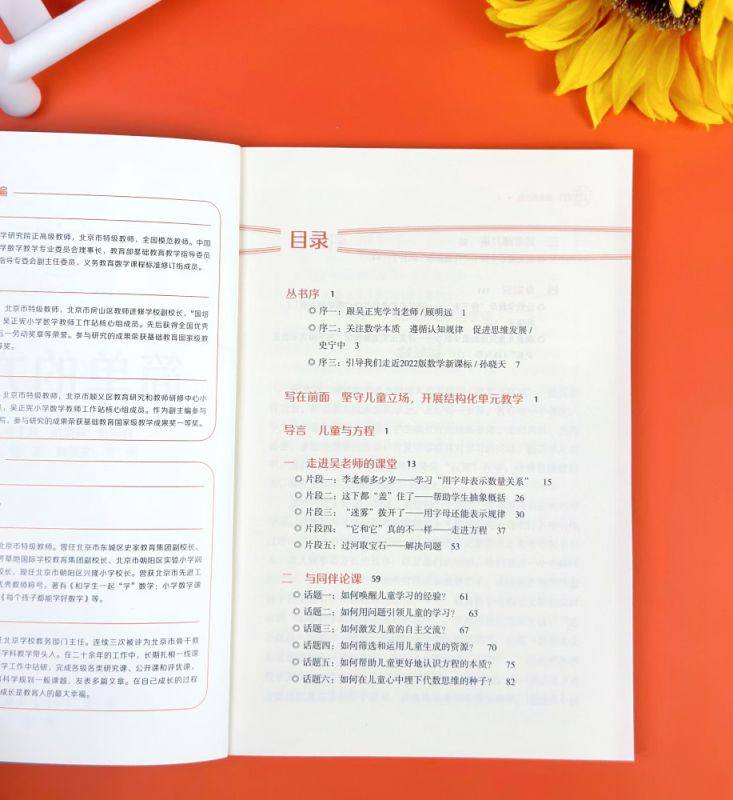 编
学研究院正高级教师，北京市特级教师，全国模范教师。中国
学数学教学专业委员会理事长，教育部基础教育教学指导委员
指导专委会副主任委员，义务教育数学课程标准修订组成员。
北京市特级教师，北京市房山区教师进修学校副校长，“国培
吴正宪小学数学教师工作站核心组成员。先后获得全国优秀
五一劳动奖章等荣誉。参与研究的成果荣获基础教育国家级教
等奖。
北京市特级教师，北京市顺义区教育研究和教师研修中心小
员，吴正宪小学数学教师工作站核心组成员。作为副主编参与
写，参与研究的成果荣获基础教育国家级教学成果奖一等奖。
北京市特级教师。曾任北京市东城区史家教育集团副校长、
芳草地国际学校教育集团副校长、北京市朝阳区实验小学副
校长，现任北京市朝阳区兴隆小学校长。曾获北京市先进工
优秀教师称号。著有《和学生一起“学”数学：小学数学课
《每个孩子都能学好数学》等。
任北京学校教务部门主任。连续三次被评为北京市骨干教
学科教学带头人。在二十余年的工作中，长期扎根一线课
学工作中钻研，完成各级各类研究课、公开课和评优课，
育科学规划一般课题，发表多篇文章。在自己成长的过程
成长是教育人的最大幸福。
目录
丛书序 1
◎ 序一：跟吴正宪学当老师 / 顾明远 1
◎ 序二：关注数学本质 遵循认知规律 促进思维发展 /
史宁中 3
◎ 序三：引导我们走近2022版数学新课标 / 孙晓天 7
写在前面 坚守儿童立场，开展结构化单元教学 1
导言 儿童与方程 1
一 走进吴老师的课堂 13
◎ 片段一：李老师多少岁——学习“用字母表示数量关系” 15
◎ 片段二：这下都“盖”住了——帮助学生抽象概括 26
◎ 片段三：“迷雾”拨开了——用字母还能表示规律 30
◎ 片段四：“它和它”真的不一样——走进方程 37
◎ 片段五：过河取宝石——解决问题 53
二 与同伴论课 59
◎ 话题一：如何唤醒儿童学习的经验？ 61
◎ 话题二：如何用问题引领儿童的学习？ 63
◎ 话题三：如何激发儿童的自主交流？ 67
◎ 话题四：如何筛选和运用儿童生成的资源？ 70
◎ 话题五：如何帮助儿童更好地认识方程的本质？ 75
◎ 话题六：如何在儿童心中埋下代数思维的种子？ 82